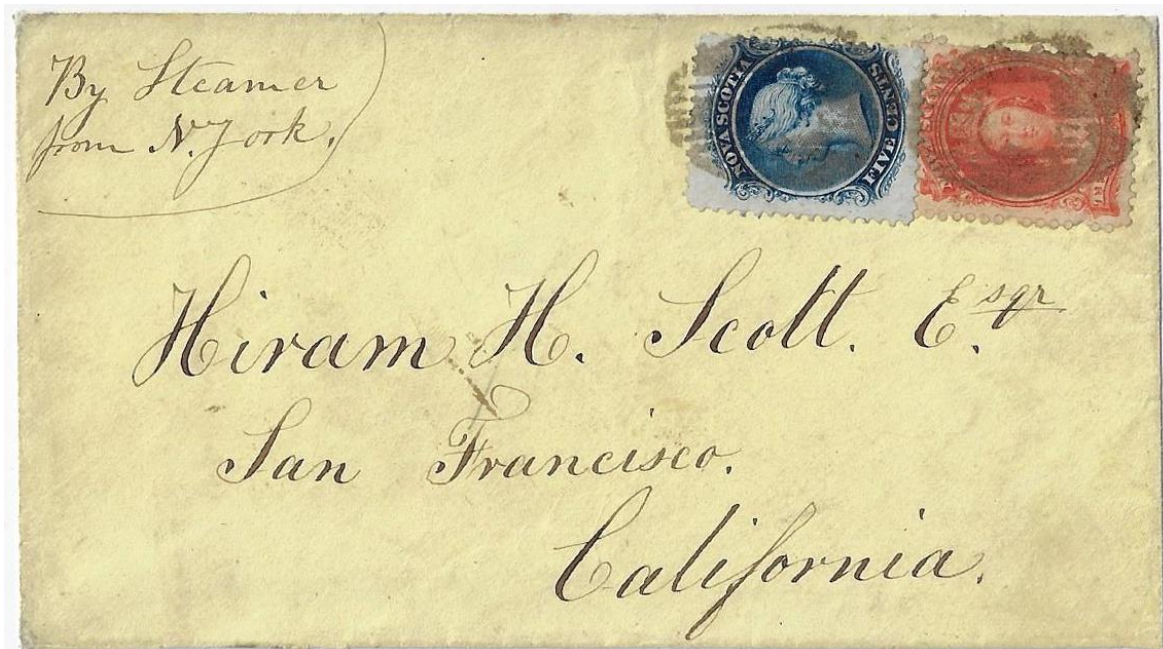 By Steamer
from N. York.
NOVA SCOTIA
FIVE CENTS
Hiram H. Scott. Esqr
San Francisco.
California.